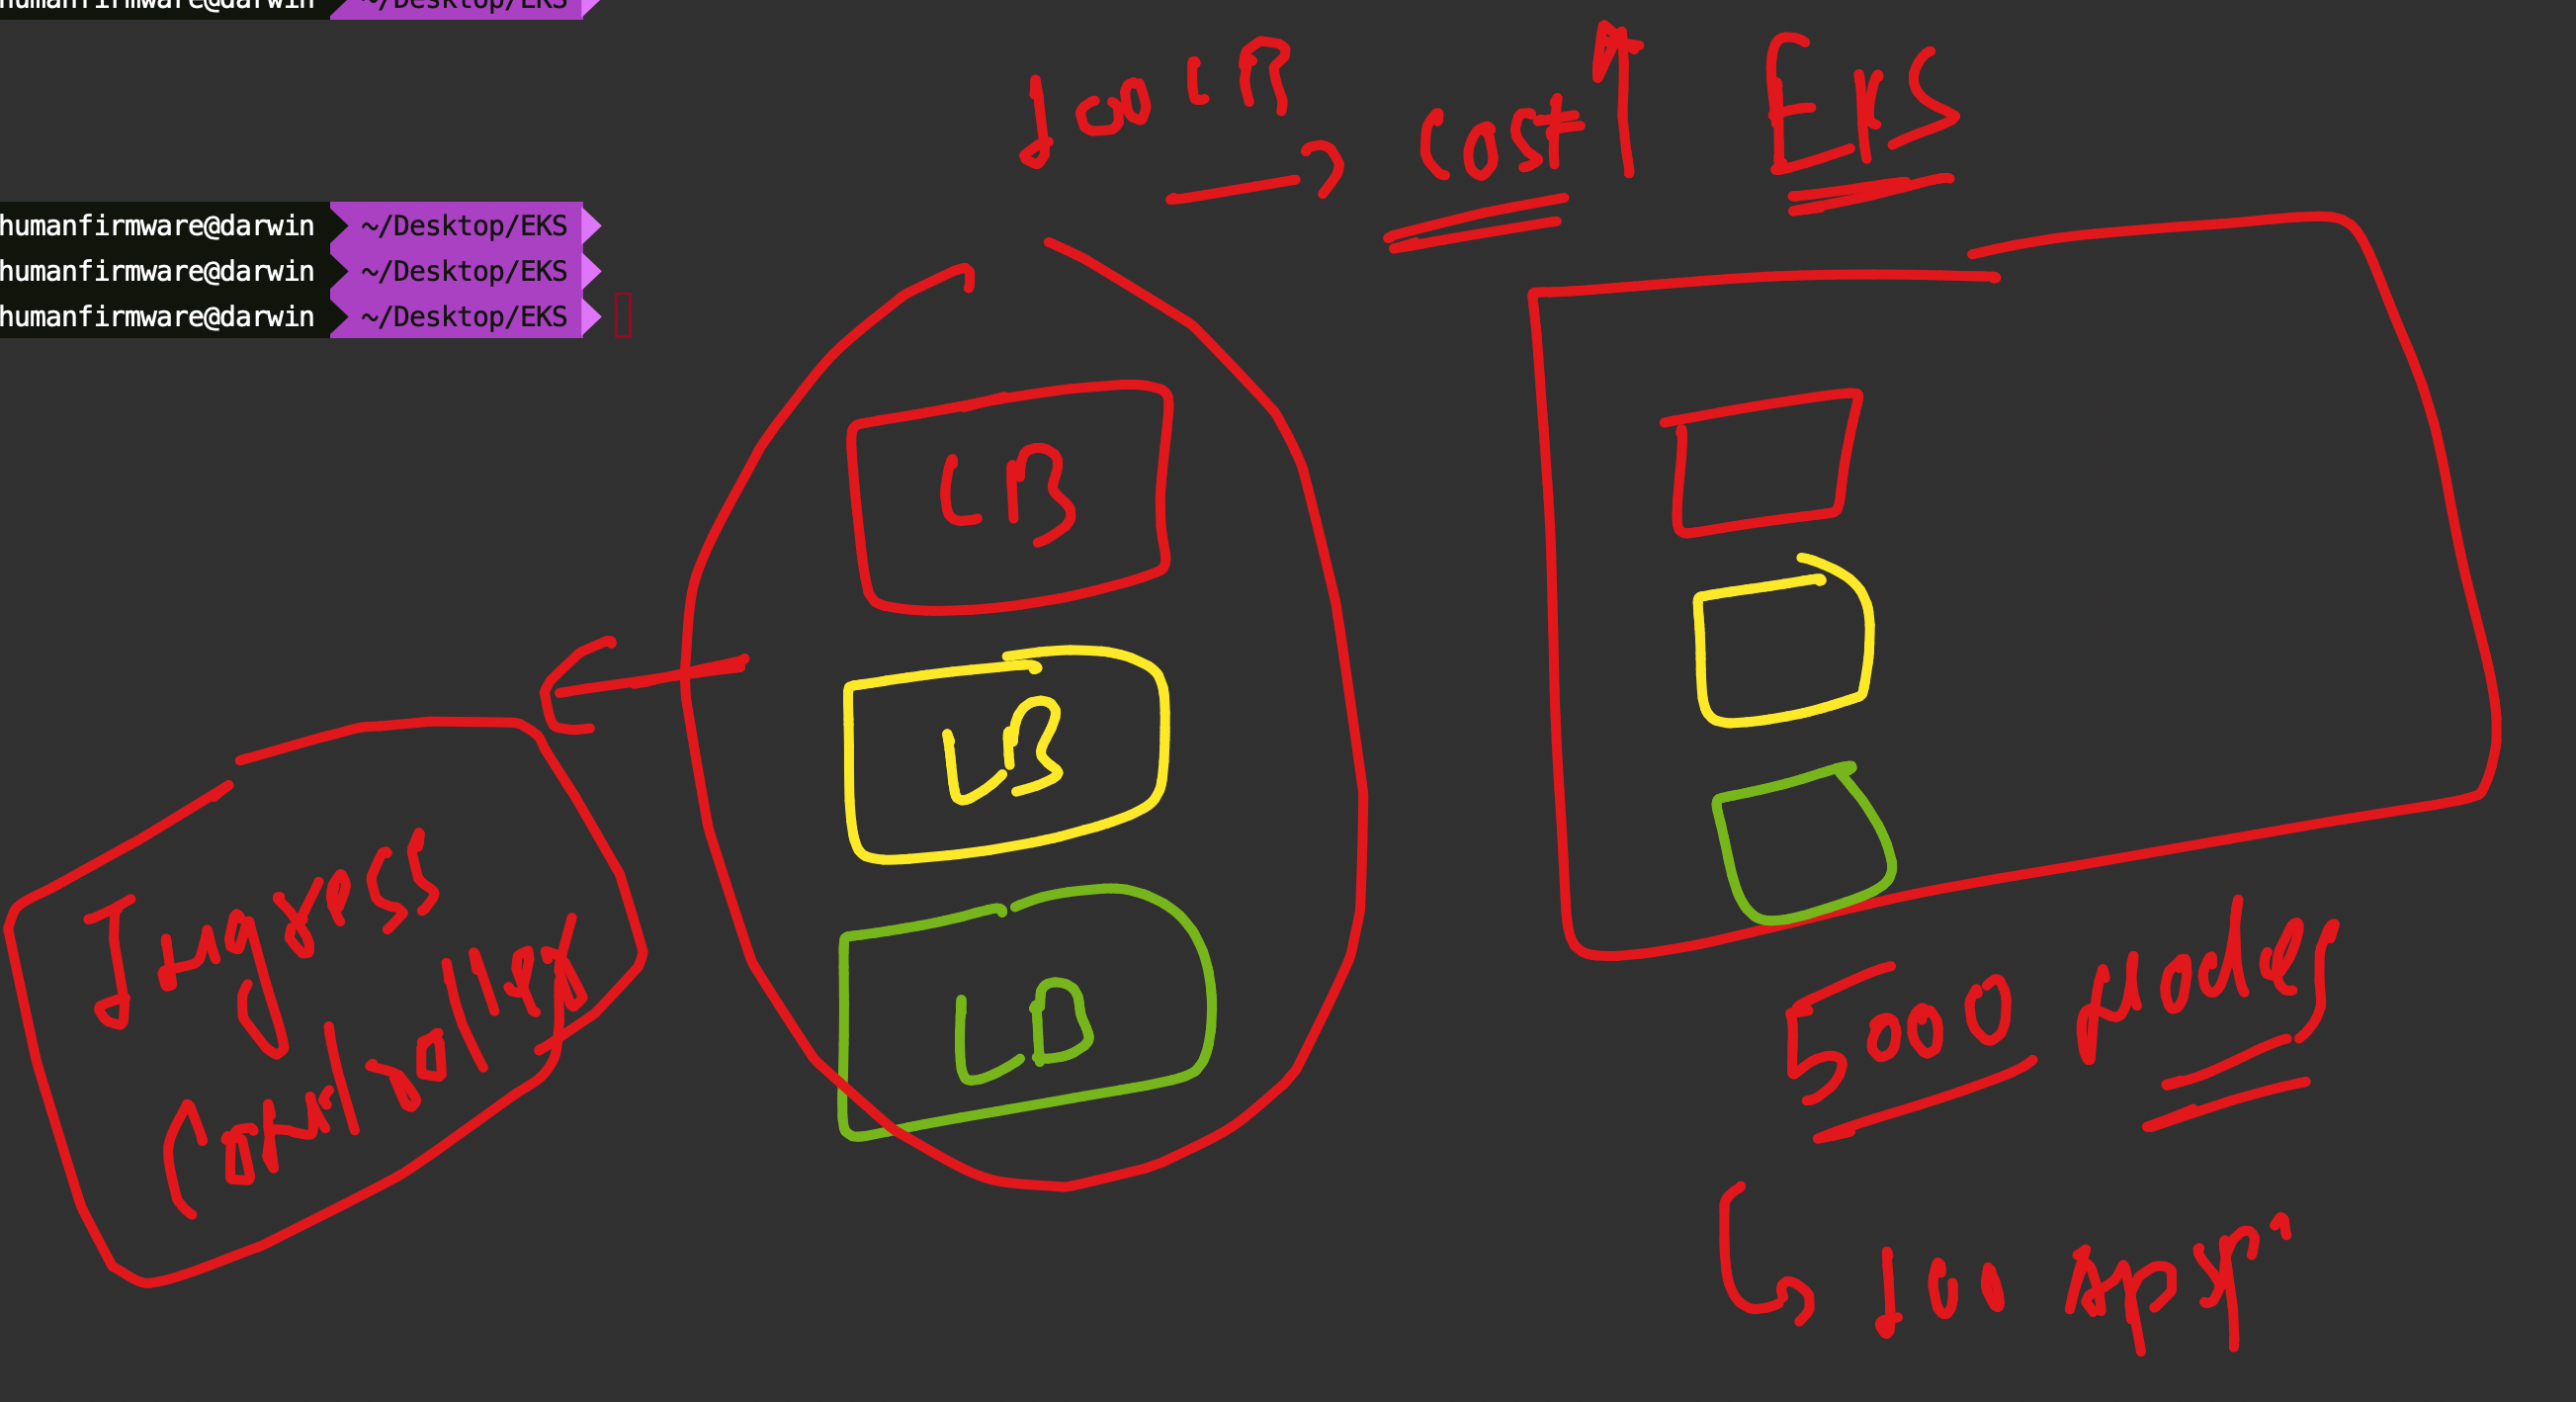 humanfirmware@darwin ~/Desktop/EKS
humanfirmware@darwin ~/Desktop/EKS
humanfirmware@darwin ~/Desktop/EKS
humanfirmware@darwin ~/Desktop/EKS
100 LB
Cost
EKS
LB
LB
LB
Ingress
Controller
5000 nodes
100 apps